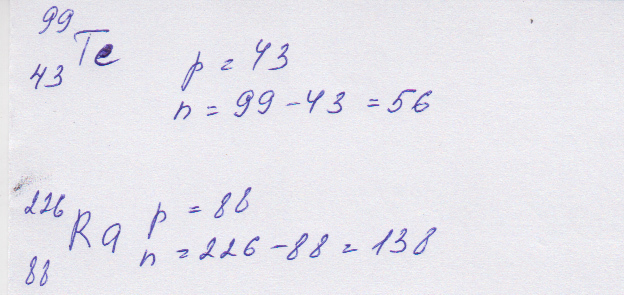 99
43 Te p = 43
n = 99 - 43 = 56
226
88 Ra p = 88
n = 226 - 88 = 138